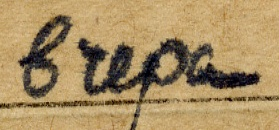 вчера